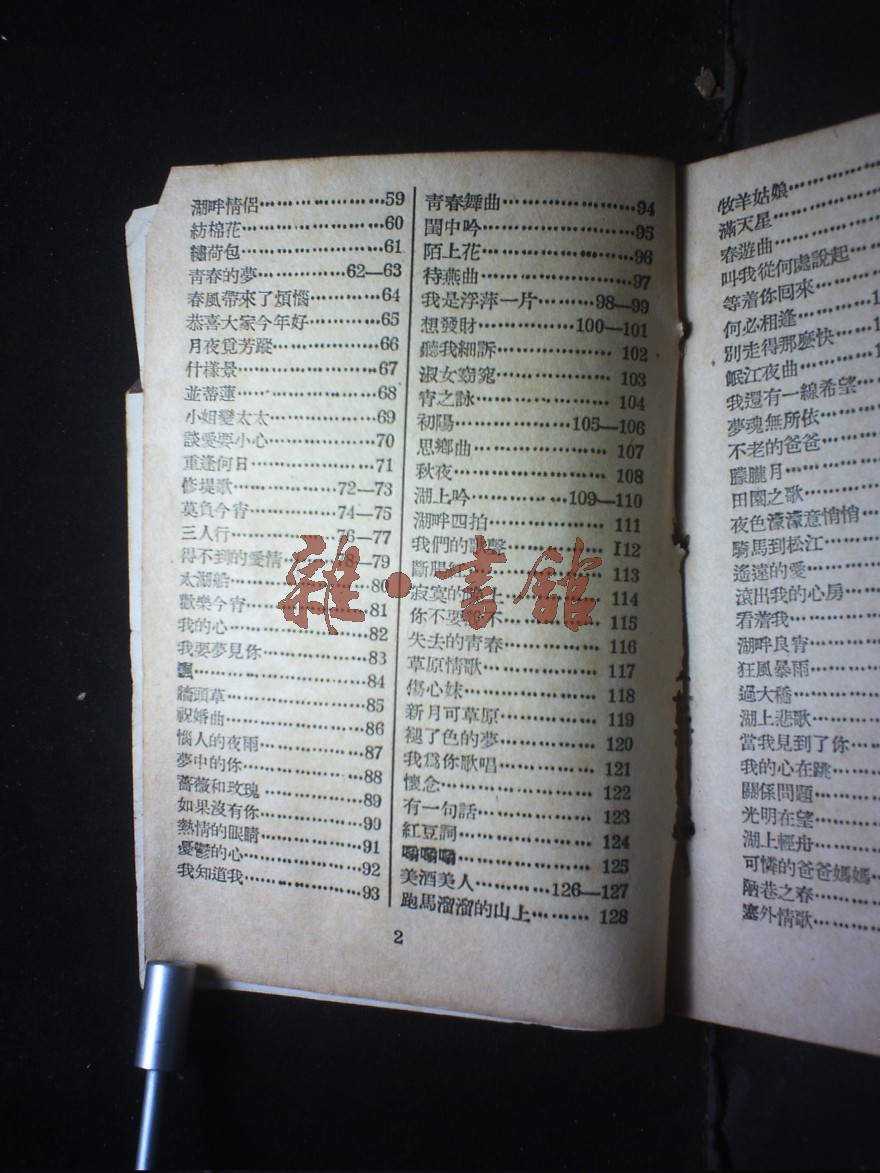 湖畔情侶……………59
紡棉花……………60
繡荷包……………61
青春的夢…………62—63
春風帶來了煩惱………64
恭喜大家今年好………65
月夜覓芳蹤…………66
什樣景……………67
並蒂蓮……………68
小姐變太太…………69
談愛要小心…………70
重逢何日……………71
修堤歌……………72—73
莫負今宵…………74—75
三人行……………76—77
得不到的愛情………78—79
太湖船……………80
歡樂今宵……………81
我的心……………82
我要夢見你…………83
飄………………84
牆頭草……………85
祝婚曲……………86
惱人的夜雨…………87
夢中的你……………88
薔薇和玫瑰…………89
如果沒有你…………90
熱情的眼睛…………91
憂鬱的心……………92
我知道我……………93
青春舞曲……………94
閨中吟……………95
陌上花……………96
待燕曲……………97
我是浮萍一片………98—99
想發財…………100—101
聽我細訴…………102
淑女窈窕…………103
宵之詠……………104
初陽……………105—106
思鄉曲……………107
秋夜……………108
湖上吟…………109—110
湖畔四拍…………111
我們的歌聲…………112
斷腸紅……………113
寂寞的 上…………114
你不要 不…………115
失去的青春…………116
草原情歌…………117
傷心妹……………118
新月可草原…………119
褪了色的夢…………120
我為你歌唱…………121
懷念……………122
有一句話…………123
紅豆詞……………124
嗡嗡嗡……………125
美酒美人………126—127
跑馬溜溜的山上………128
2
牧羊姑娘
滿天星
春遊曲
叫我從何處說起
等着你回來
何必相逢
別走得那麼快
岷江夜曲
我還有一線希望
夢魂無所依
不老的爸爸
朦朧月
田園之歌
夜色濛濛意悄悄
騎馬到松江
遙遠的愛
滾出我的心房
看着我
湖畔良宵
狂風暴雨
過大橋
湖上悲歌
當我見到了你
我的心在跳
關係問題
光明在望
湖上輕舟
可憐的爸爸媽媽
陋巷之春
塞外情歌
雜·書館